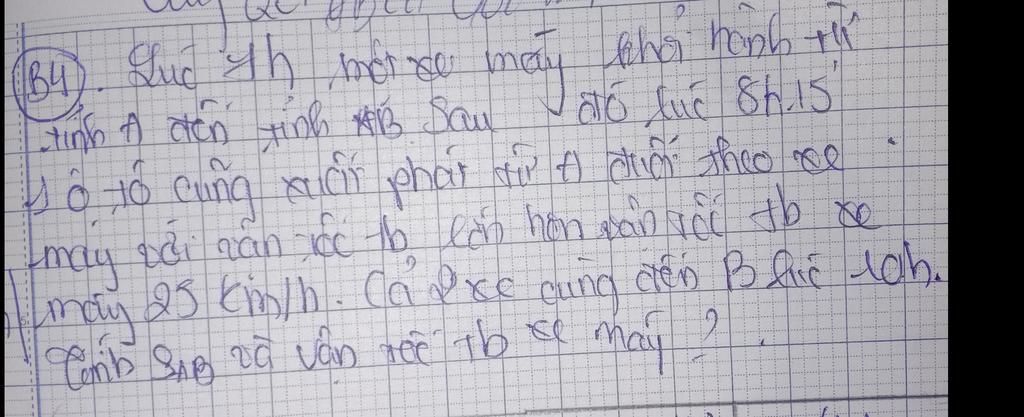 B4. Lúc 7h một xe máy khởi hành từ
tỉnh A đến tỉnh B Sau đó lúc 8h15'
1 ô tô cũng xuất phát từ A đuổi theo xe
máy với vận tốc tb lớn hơn vận tốc tb xe
máy 25 km/h. Cả 2 xe cùng đến B lúc 10h.
Tính SAB và vận tốc tb xe máy ?